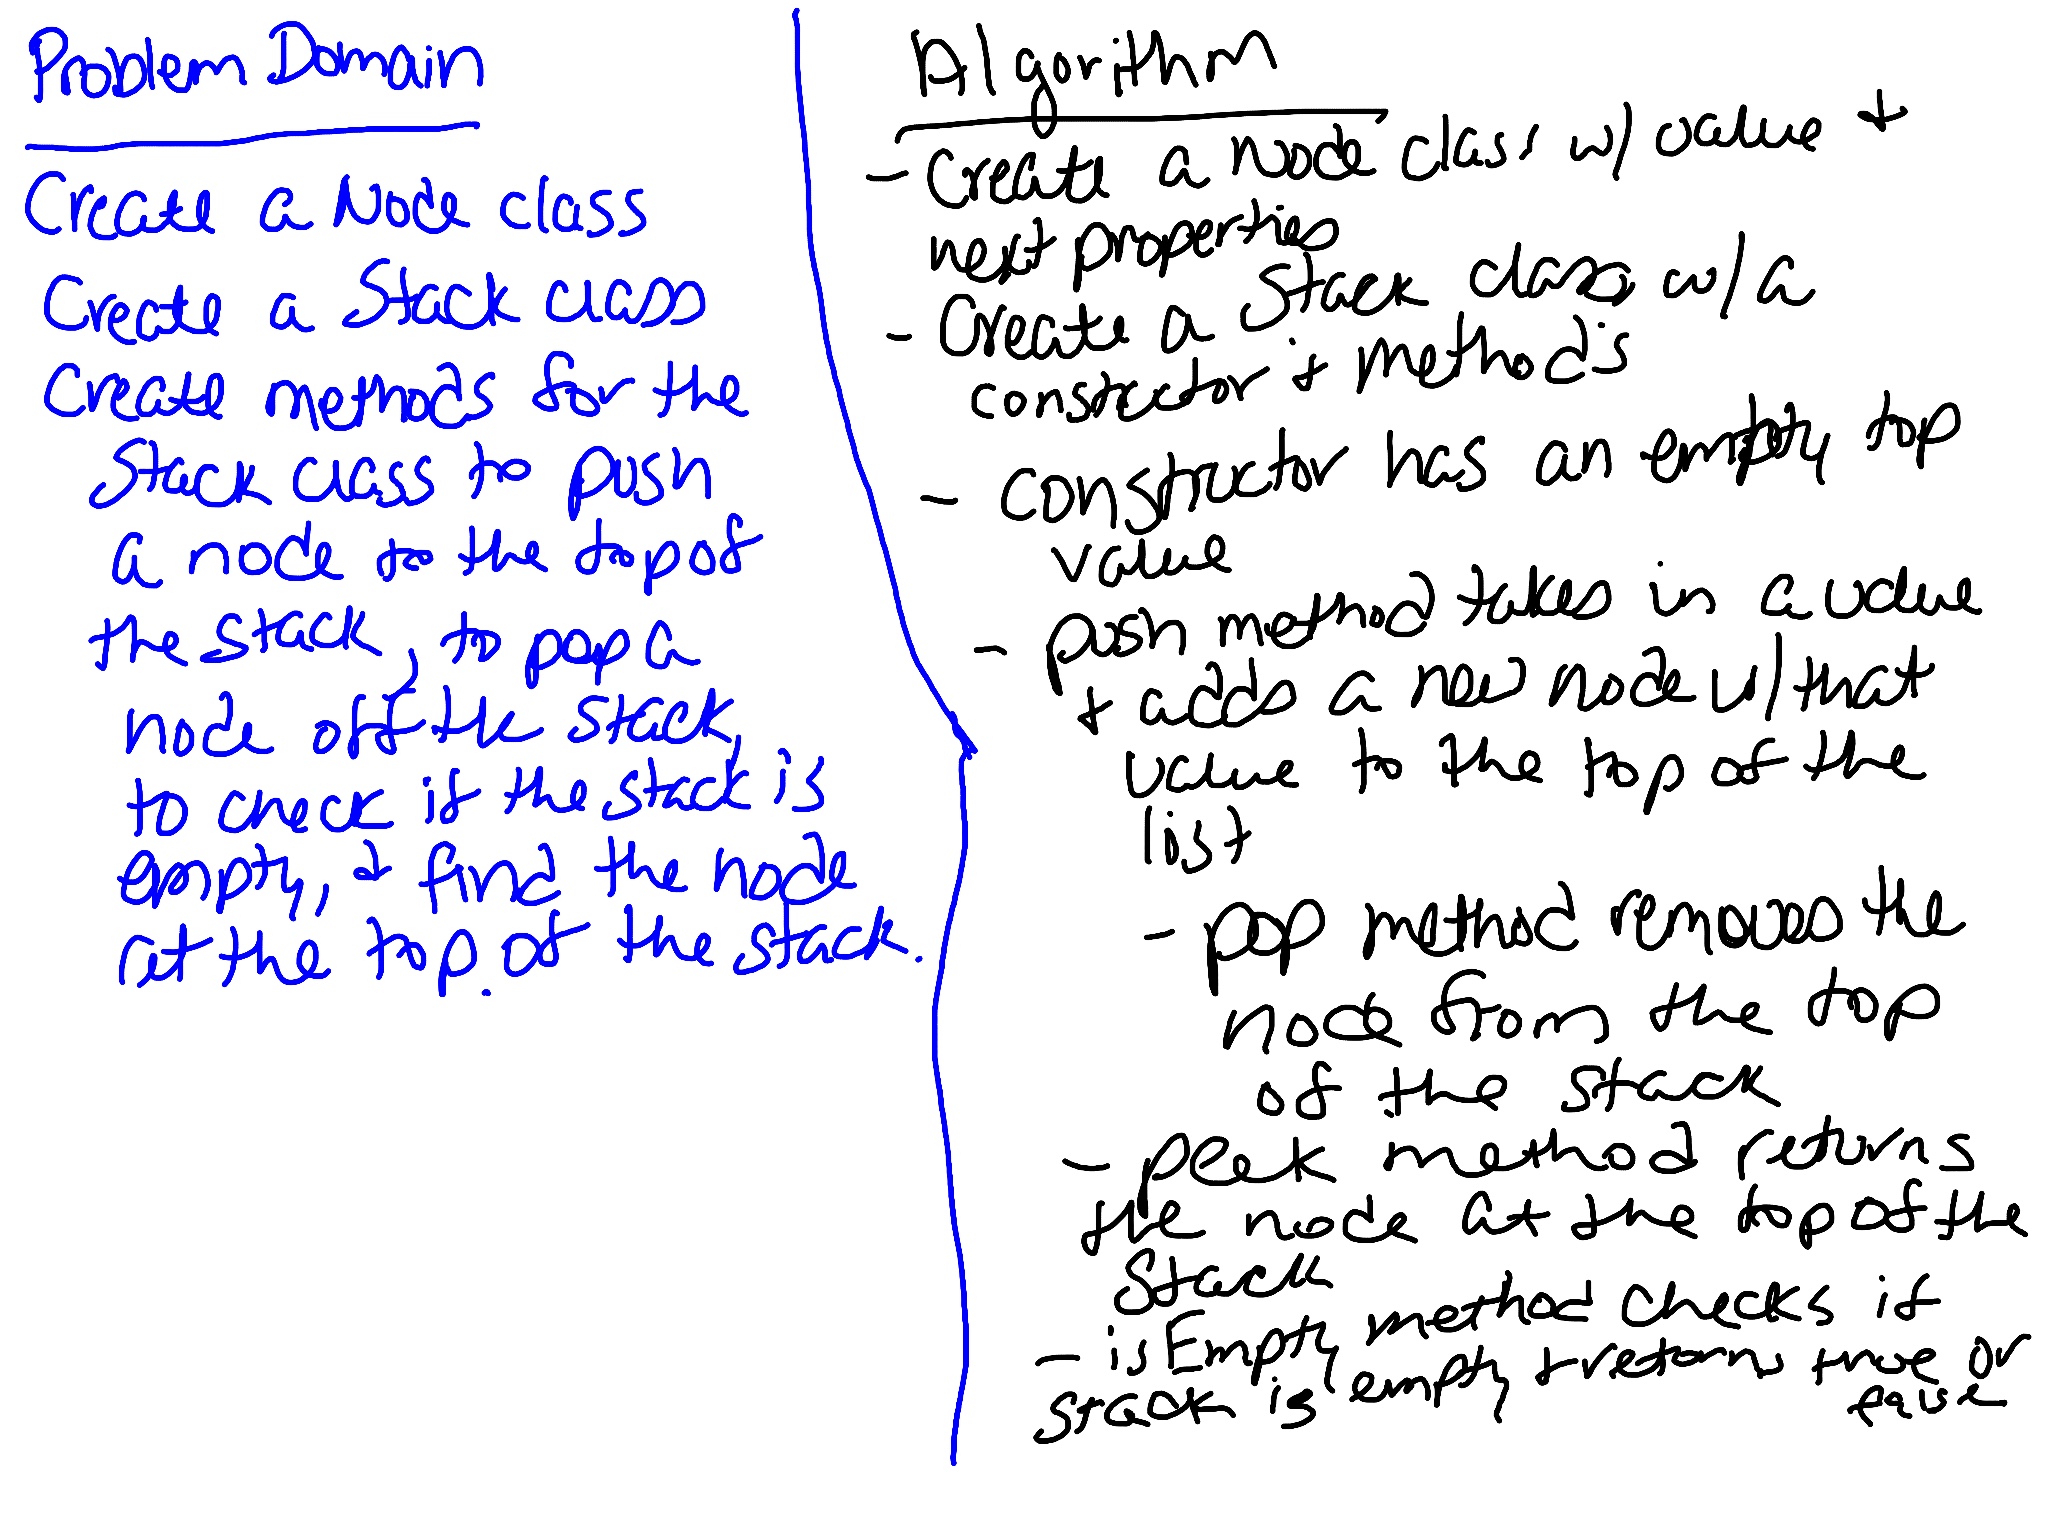 Problem Domain
Create a Node class
Create a Stack class
Create methods for the
Stack class to push
a node to the top of
the stack, to pop a
node off the stack,
to check if the stack is
empty, & find the node
at the top of the stack.
Algorithm
- Create a Node class w/ value +
next properties
- Create a Stack class w/ a
constructor + methods
- constructor has an empty top
value
- push method takes in a value
+ adds a new node w/ that
value to the top of the
list
- pop method removes the
node from the top
of the stack
- peek method returns
the node at the top of the
Stack
- isEmpty method checks if
stack is empty + returns true or
false